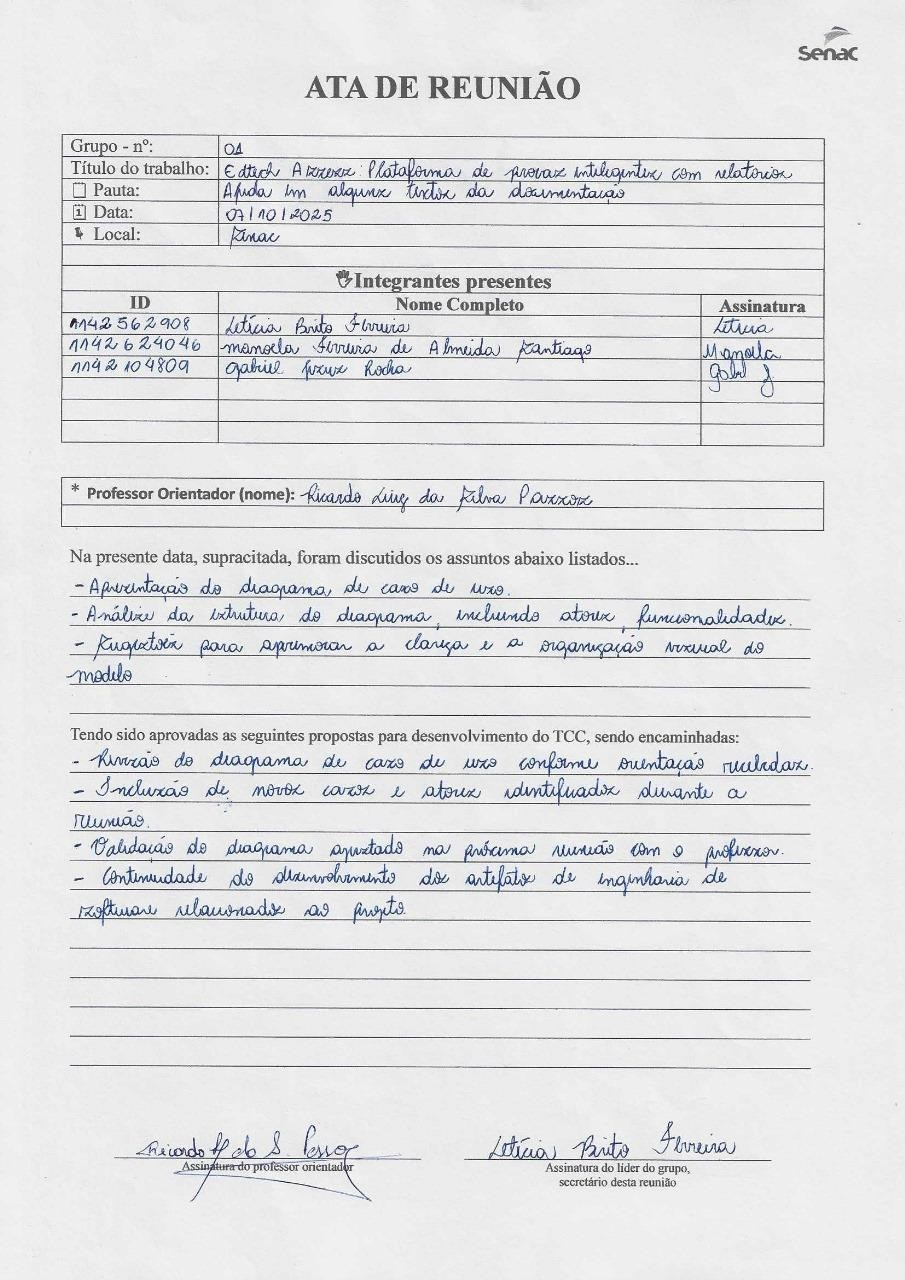 Senac
ATA DE REUNIÃO
Grupo - nº: 01
Título do trabalho: Edtech Assess: Plataforma de provas inteligentes com relatórios
Pauta: Ajuda em alguns textos da documentação
Data: 07/10/2025
Local: Senac
Integrantes presentes
ID Nome Completo Assinatura
1142562908 Letícia Brito Ferreira Letícia
1142624046 Manoela Ferreira de Almeida Santiago Manoela
1142104809 Gabriel Jesus Rocha Gabriel J
* Professor Orientador (nome): Ricardo Luiz da Silva Passos
Na presente data, supracitada, foram discutidos os assuntos abaixo listados...
- Apresentação do diagrama de caso de uso.
- Análise da estrutura do diagrama, incluindo atores, funcionalidades.
- Sugestões para aprimorar a clareza e a organização visual do
modelo
Tendo sido aprovadas as seguintes propostas para desenvolvimento do TCC, sendo encaminhadas:
- Revisão do diagrama de caso de uso conforme orientação recebidas.
- Inclusão de novos casos e atores identificados durante a
reunião.
- Validação do diagrama ajustado na próxima reunião com o professor.
- Continuidade do desenvolvimento dos artefatos de engenharia de
software relacionados ao projeto.
Ricardo da S. Passos
Letícia Brito Ferreira
Assinatura do professor orientador
Assinatura do líder do grupo,
secretário desta reunião